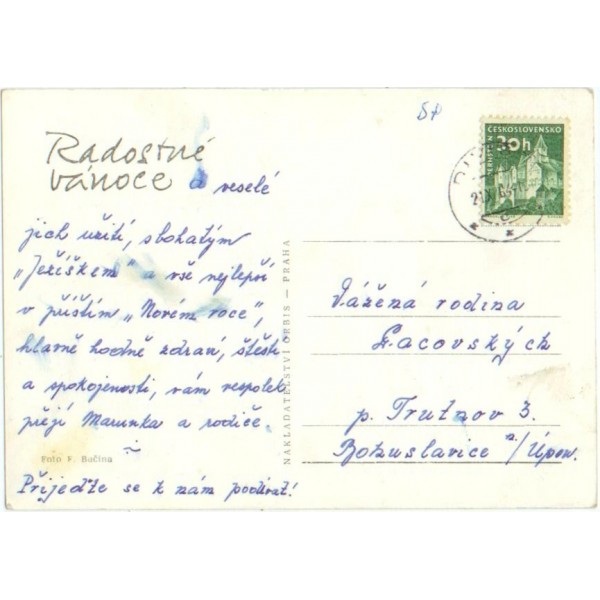 87
ČESKOSLOVENSKO
30h
Radostné
vánoce a veselé
jich užití, s bohatým
„Ježíškem" a vše nejlepší
v příštím „Novém roce",
hlavně hodně zdraví, štěstí
a spokojenosti, vám vespolek
přejí Marunka a rodiče.
Foto F. Bučina
Přijeďte se k nám podívat!
NAKLADATELSTVÍ ORBIS — PRAHA
Vážená rodina
Lacovských
p. Trutnov 3.
Bohuslavice n./Úpou.